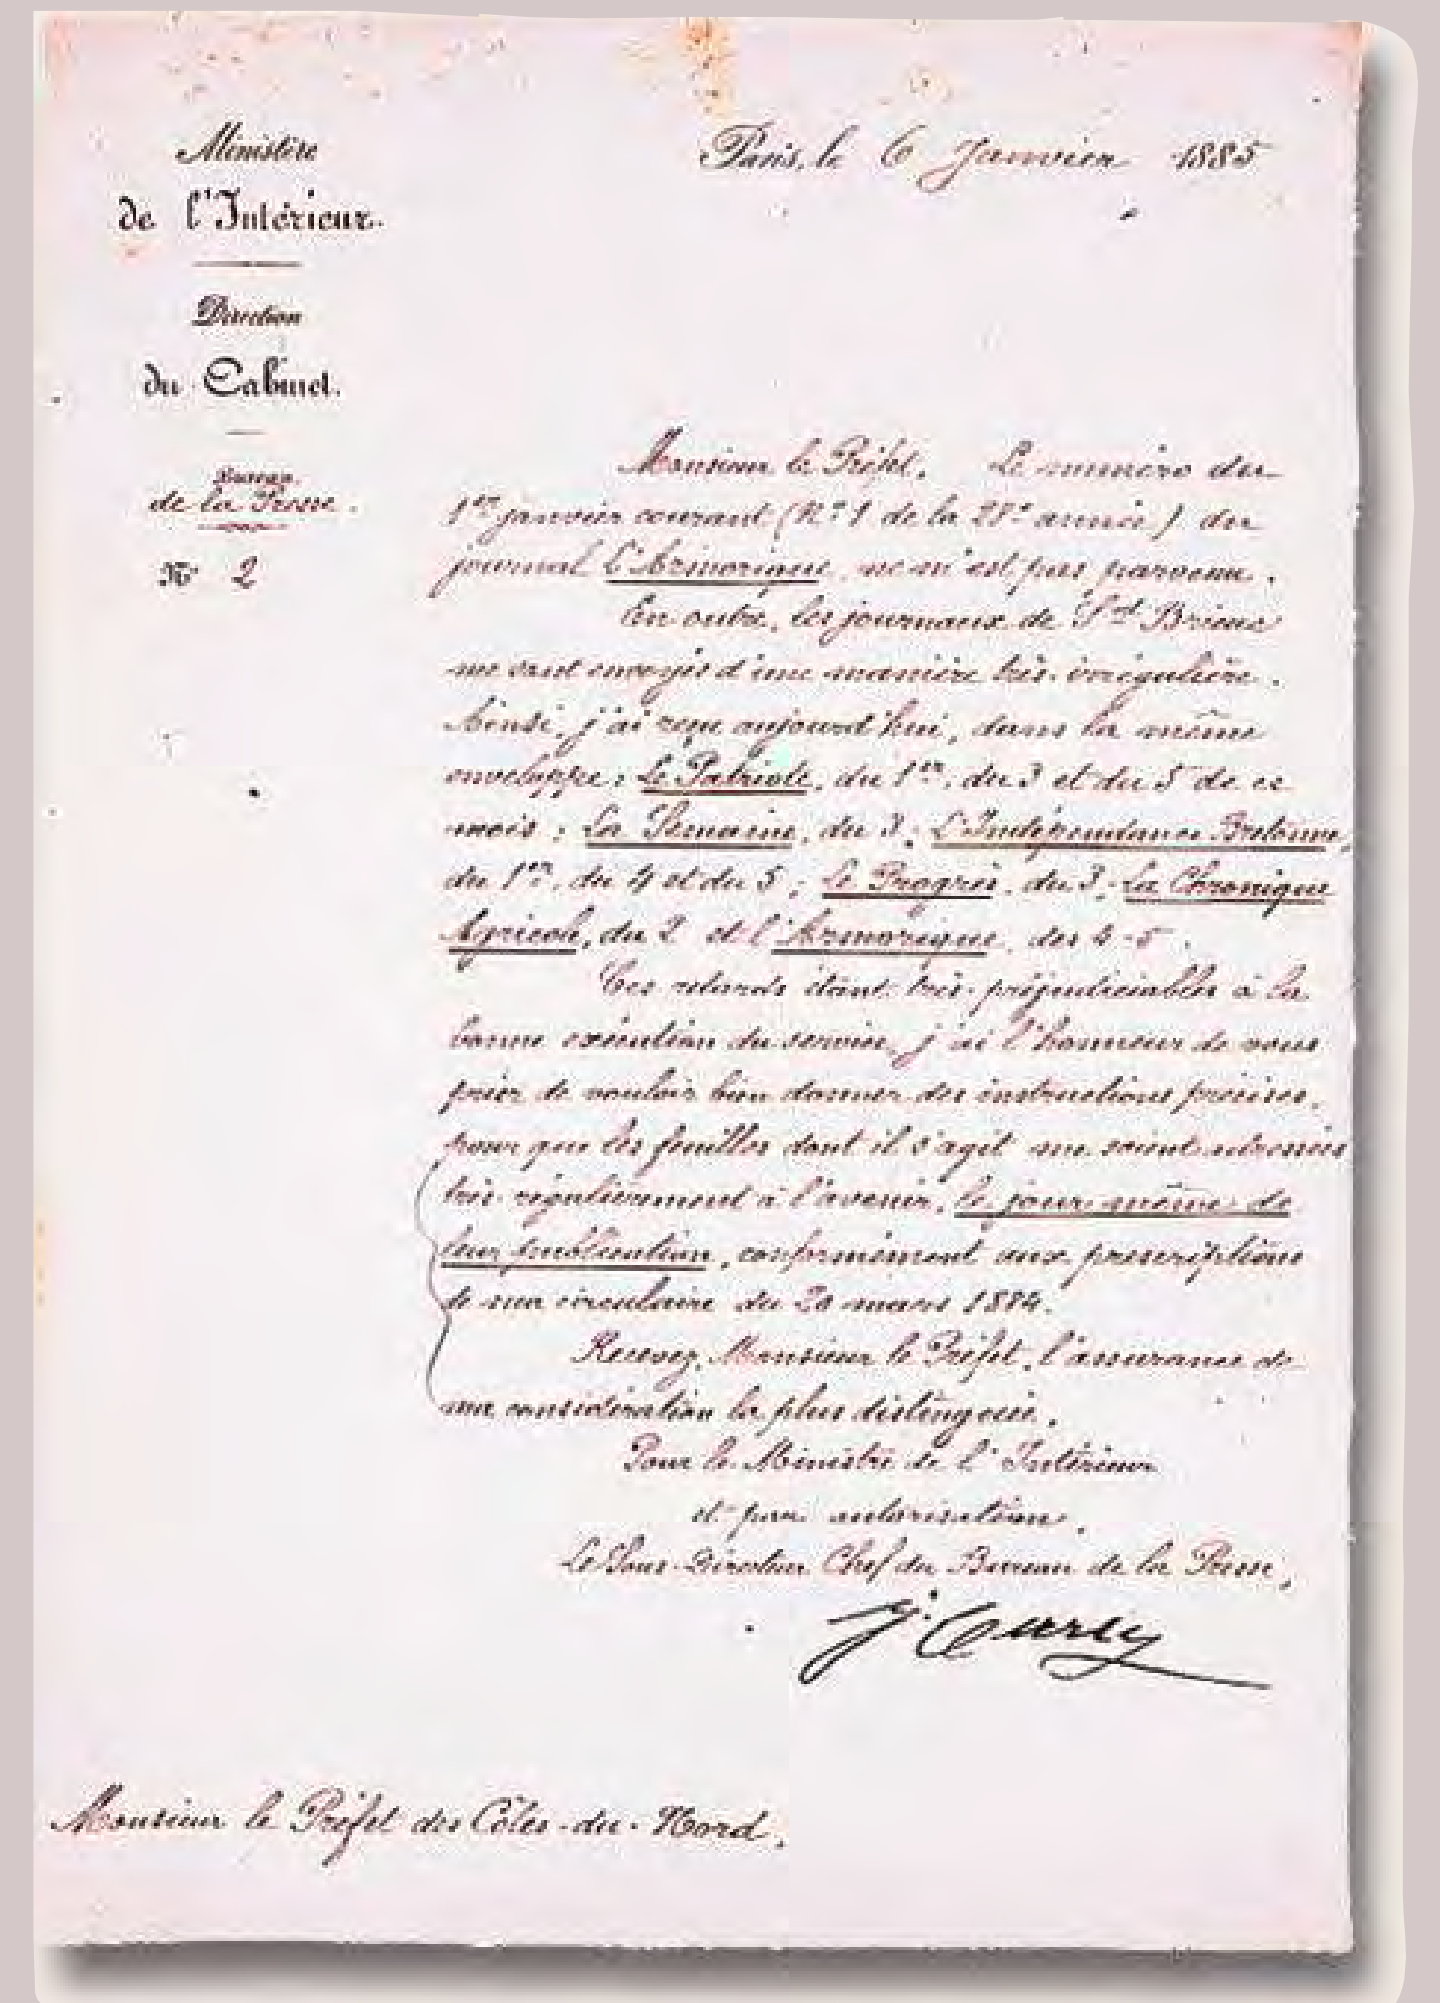 Ministère
de l'Intérieur.
Direction
du Cabinet.
Bureau
de la Presse.
N° 2
Paris, le 6 Janvier 1885
Monsieur le Préfet. Le numéro du
1er janvier courant (N° 1 de la année) du
journal l'Armorique, ne m'est pas parvenu.
En outre, les journaux de St Brieuc
me sont envoyés d'une manière très irrégulière.
Ainsi, j'ai reçu aujourd'hui, dans la même
enveloppe: Le Patriote, du 1er, du 3 et du 5 de ce
mois; La Semaine, du 3; L'Indépendance Bretonne,
du 1er, du 4 et du 5; Le Progrès, du 3; La Chronique
Agricole, du 2 et l'Armorique, des 4-5.
Ces retards étant très préjudiciables à la
bonne exécution du service, j'ai l'honneur de vous
prier de vouloir bien donner des instructions précises,
pour que les feuilles dont il s'agit me soient adressées
très régulièrement à l'avenir, le jour même de
leur publication, conformément aux prescriptions
de ma circulaire du 20 mars 1884.
Recevez, Monsieur le Préfet, l'assurance de
ma considération la plus distinguée.
Pour le Ministre de l'Intérieur
et par autorisation,
Le Sous-Directeur Chef du Bureau de la Presse,
Monsieur le Préfet des Côtes-du-Nord.